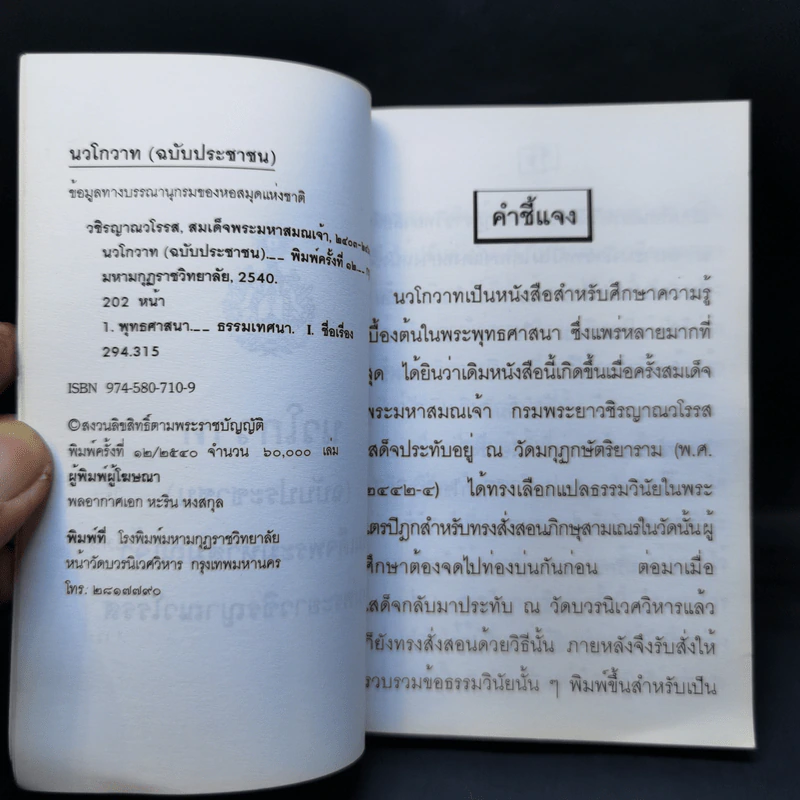 นวโกวาท (ฉบับประชาชน)
ข้อมูลทางบรรณานุกรมของหอสมุดแห่งชาติ
วชิรญาณวโรรส, สมเด็จพระมหาสมณเจ้า, ๒๔๐๓-๒๔
นวโกวาท (ฉบับประชาชน).-- พิมพ์ครั้งที่ ๑๒.--
มหามกุฏราชวิทยาลัย, 2540.
202 หน้า
1. พุทธศาสนา.-- ธรรมเทศนา. I. ชื่อเรื่อง
294.315
ISBN 974-580-710-9
©สงวนลิขสิทธิ์ตามพระราชบัญญัติ
พิมพ์ครั้งที่ ๑๒/๒๕๔๐ จำนวน ๖๐,๐๐๐ เล่ม
ผู้พิมพ์ผู้โฆษณา
พลอากาศเอก หะริน หงสกุล
พิมพ์ที่ โรงพิมพ์มหามกุฏราชวิทยาลัย
หน้าวัดบวรนิเวศวิหาร กรุงเทพมหานคร
โทร. ๒๘๑๗๗๙๐
คำชี้แจง
นวโกวาทเป็นหนังสือสำหรับศึกษาความรู้
เบื้องต้นในพระพุทธศาสนา ซึ่งแพร่หลายมากที่
สุด ได้ยินว่าเดิมหนังสือนี้เกิดขึ้นเมื่อครั้งสมเด็จ
พระมหาสมณเจ้า กรมพระยาวชิรญาณวโรรส
เสด็จประทับอยู่ ณ วัดมกุฏกษัตริยาราม (พ.ศ.
๒๔๔๒-๔) ได้ทรงเลือกแปลธรรมวินัยในพระ
ไตรปิฎกสำหรับทรงสั่งสอนภิกษุสามเณรในวัดนั้นผู้
ศึกษาต้องจดไปท่องบ่นกันก่อน ต่อมาเมื่อ
เสด็จกลับมาประทับ ณ วัดบวรนิเวศวิหารแล้ว
ก็ยังทรงสั่งสอนด้วยวิธีนั้น ภายหลังจึงรับสั่งให้
รวบรวมข้อธรรมวินัยนั้น ๆ พิมพ์ขึ้นสำหรับเป็น